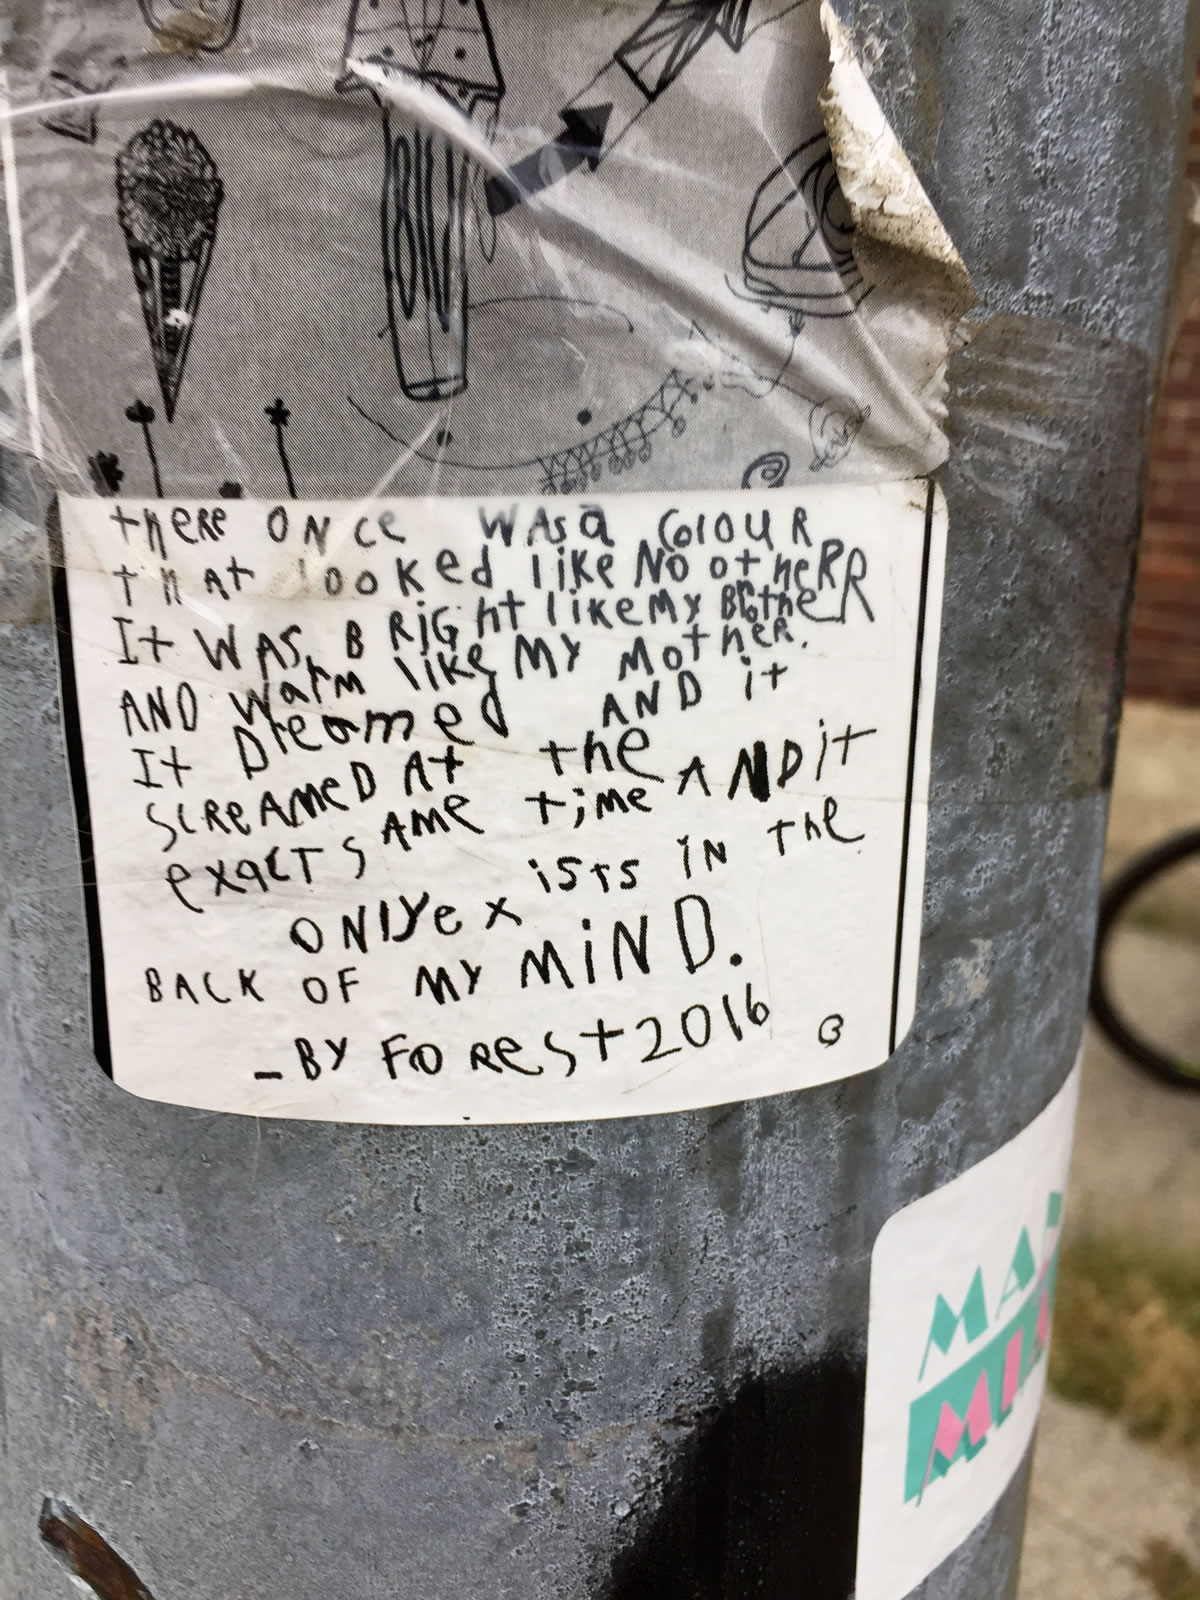 tHERE ONCE WAS a COlOUR
tHAt looked like No otHeRR
It WAS BRiGHt like My BRotHeR
AND Warm like My MotHeR.
It Dreamed AND it
SCReAMeD At the
exacT SAMe time AND it
ONlYexisTs iN The
BACK OF MY MiND.
-BY FORest 2016
MA
MI